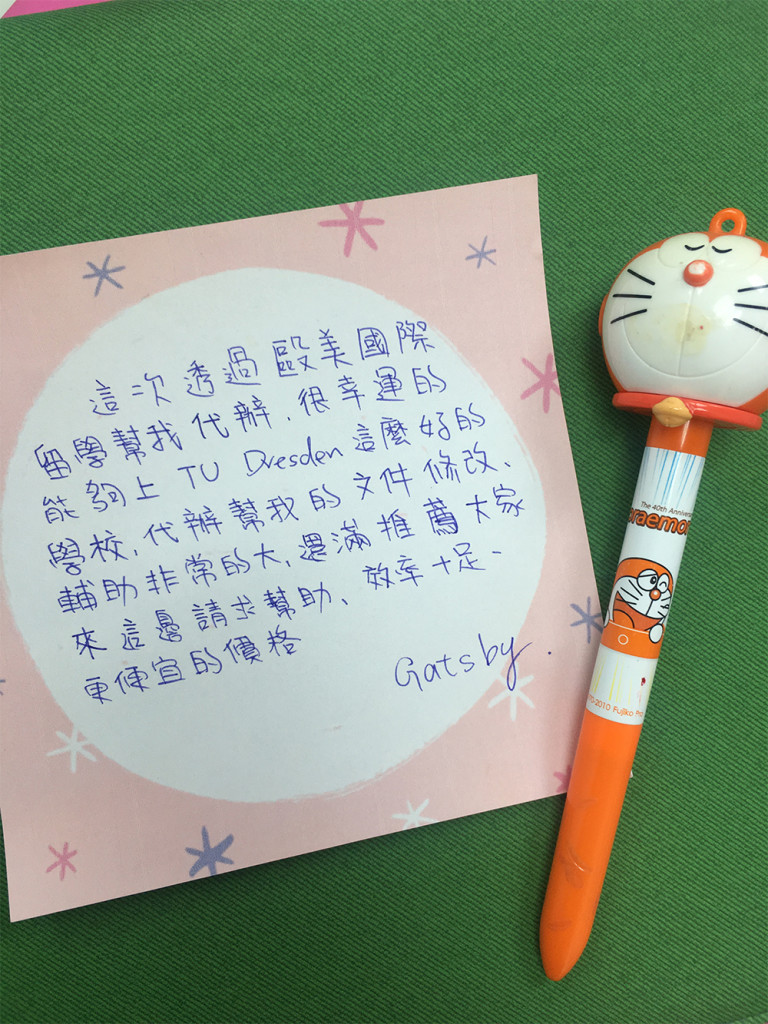 這次透過毆美國際
留學幫我代辦,很幸運的
能夠上 TU Dresden 這麼好的
學校,代辦幫我的文件修改、
輔助非常的大,還滿推薦大家
來這邊請求幫助、效率十足、
更便宜的價格
Gatsby.
The 40th Anniver
oraemon
2010 Fujiko